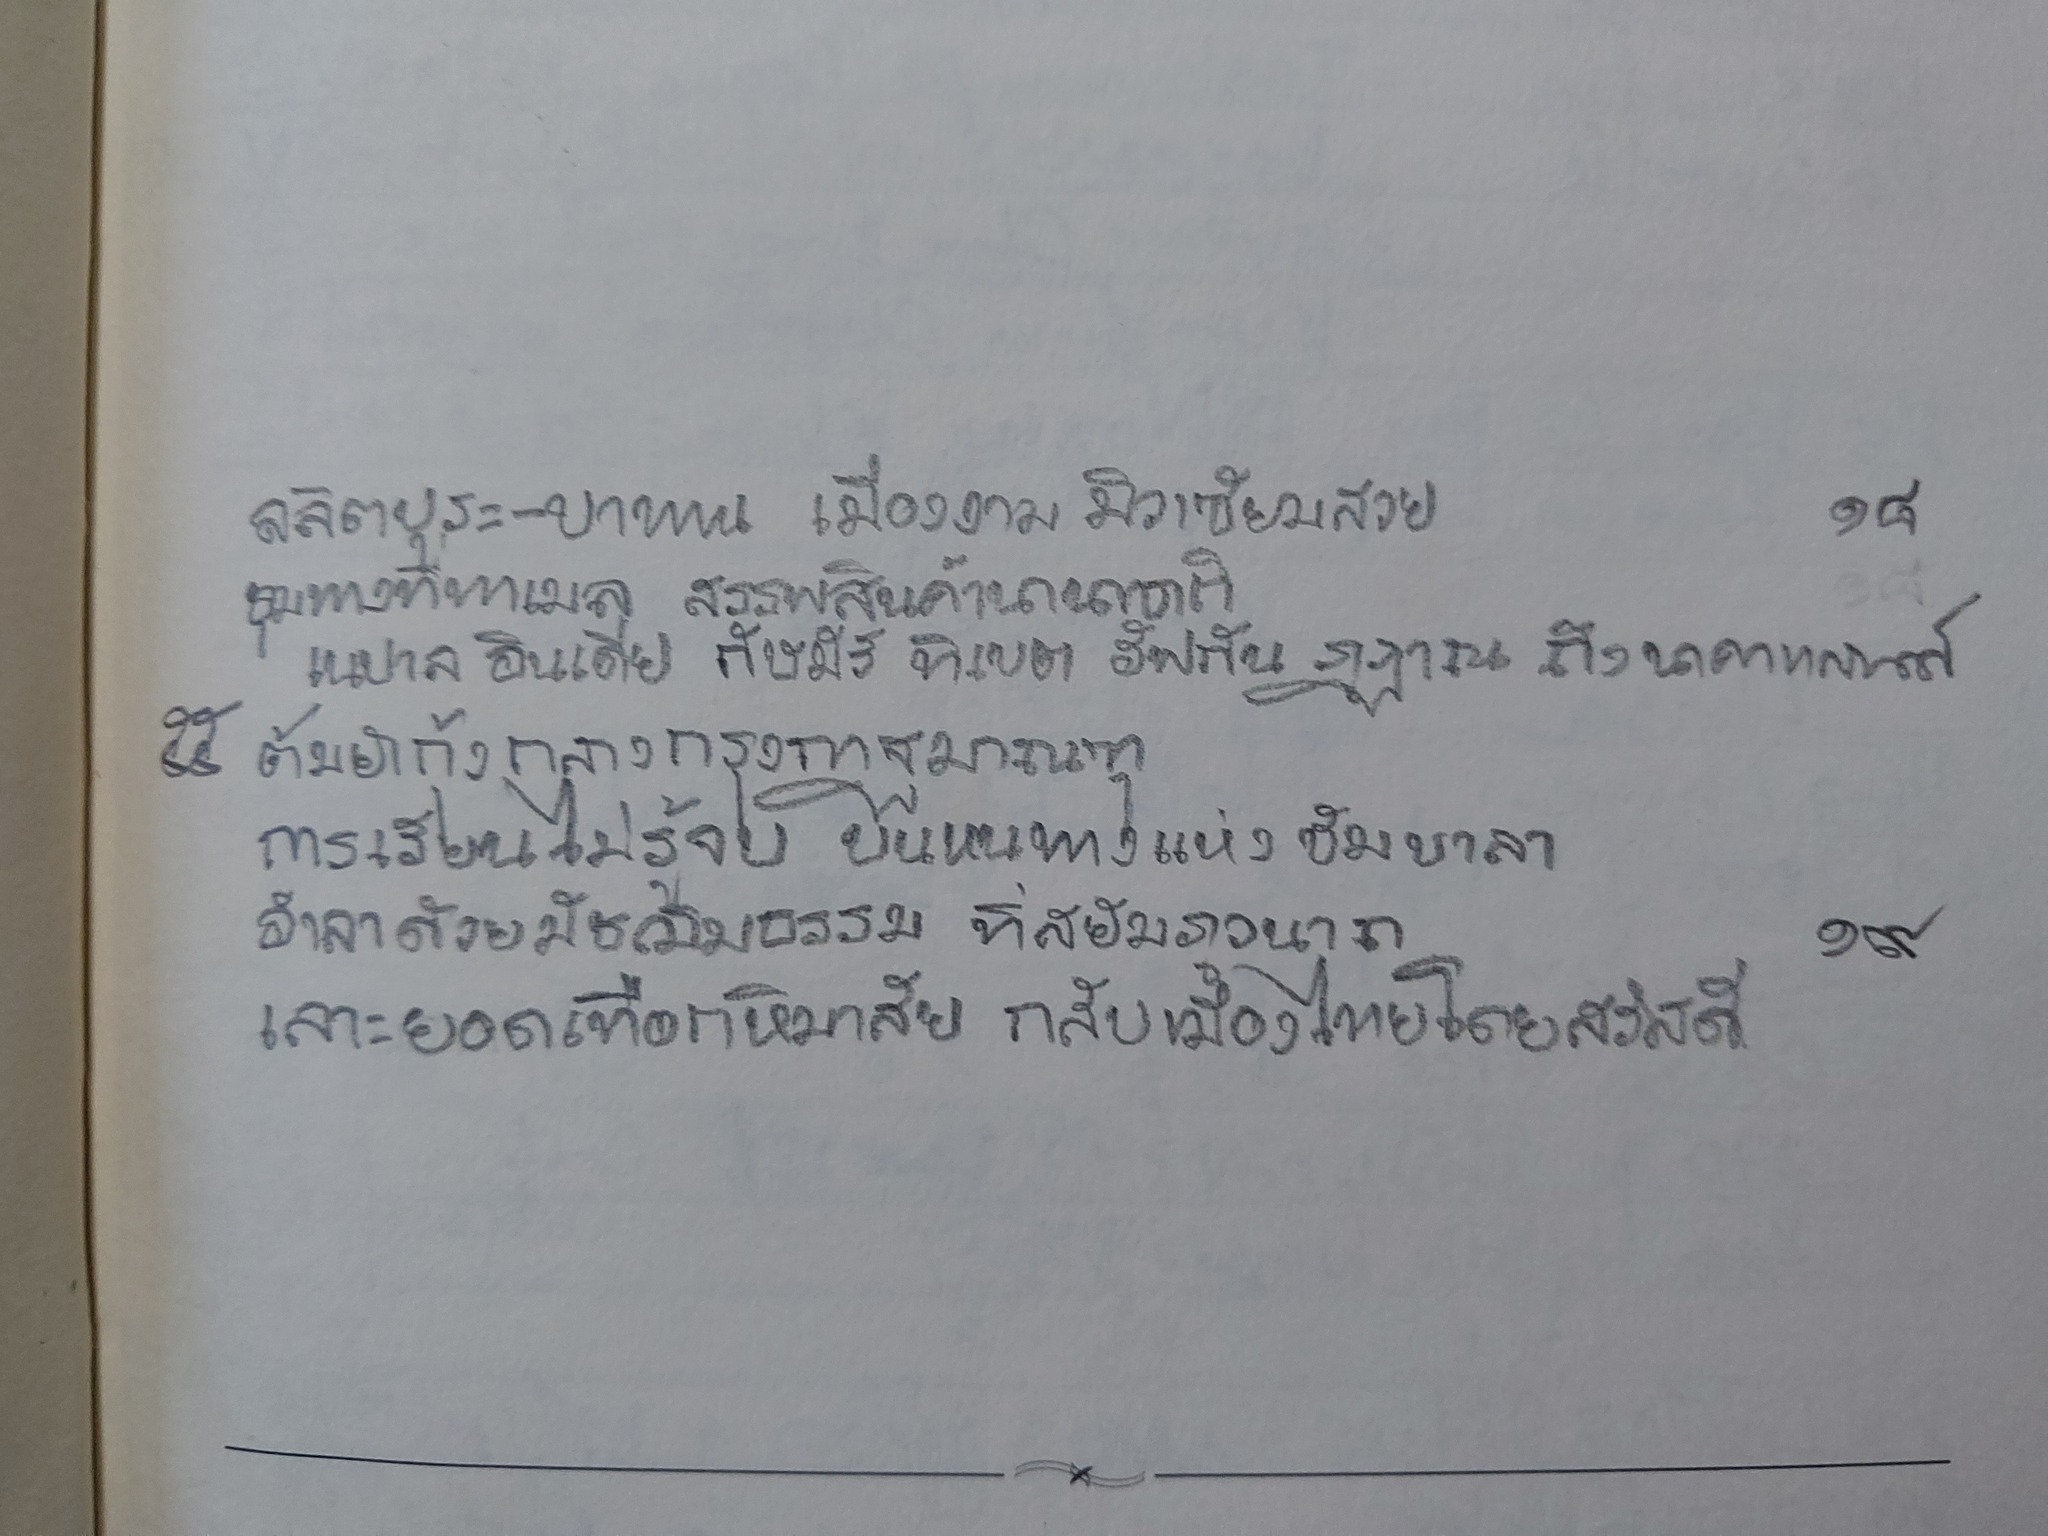 ลลิตปุระ-บาทาน เมืองงาม มิวเซียมสวย ๑๘
ชุมทางที่ทาเมล สรรพสินค้านานาชาติ
เนปาล อินเดีย กัษมีร์ ทิเบต อัฟกัน ภูฏาน ถึงนาคาแลนด์
ต้มยำกุ้งกลางกรุงกาฐมาณฑุ
การเรียนไม่รู้จบ บนหนทางแห่ง ชัมบาลา
อำลาด้วยมัชฌิมธรรม ที่สยัมภูวนาถ ๑๙
เลาะยอดเทือกหิมาลัย กลับเมืองไทยโดยสวัสดี